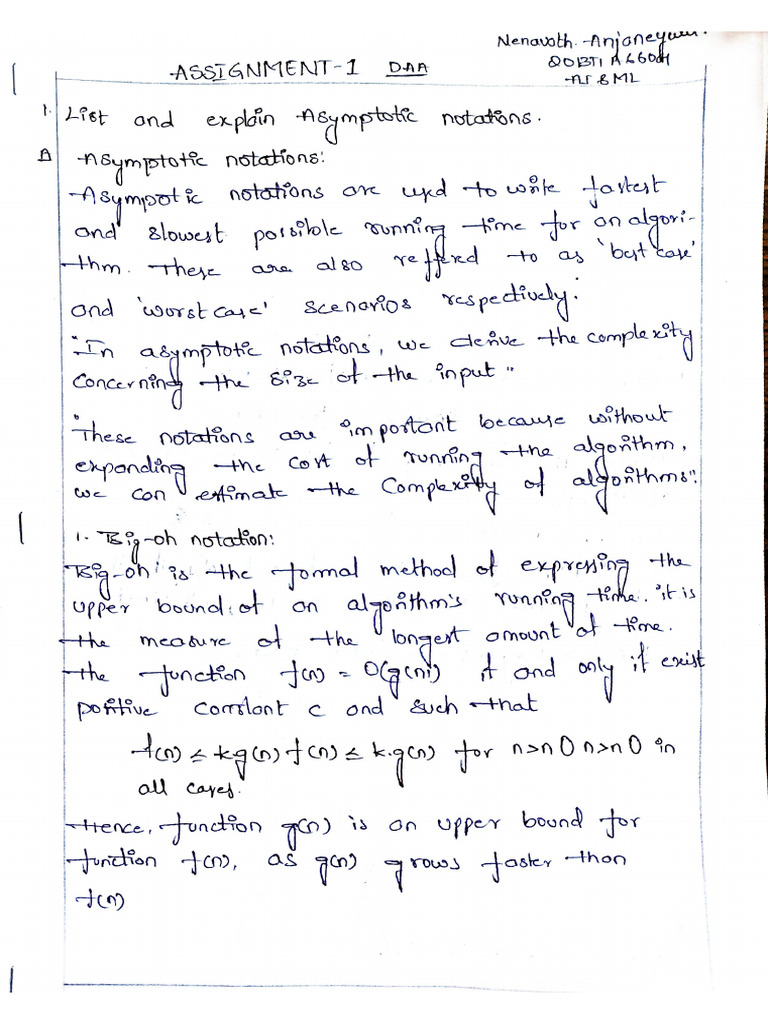 Nenavath. Anjaneyulu.
ASSIGNMENT-1 DAA
AI & ML
1. List and explain Asymptotic notations.
A Asymptotic notations:
Asympotic notations are used to write fastest
and slowest possible running time for an algori-
thm. These are also reffered to as 'best case'
and 'worst case' scenarios respectively.
"In asymptotic notations, we derive the complexity
concerning the size of the input"
"These notations are important because without
expanding the cost of running the algorithm,
we can estimate the complexity of algorithms".
1. Big-oh notation:
Big-oh is the formal method of expressing the
upper bound of an algorithm's running time. it is
the measure of the longest amount of time.
the function f(n) = O(g(n)) if and only if exist
positive constant c and such that
f(n) ≤ kg(n) f(n) ≤ k.g(n) for n>n0 n>n0 in
all cases.
Hence, function g(n) is an upper bound for
function f(n), as g(n) grows faster than
f(n)